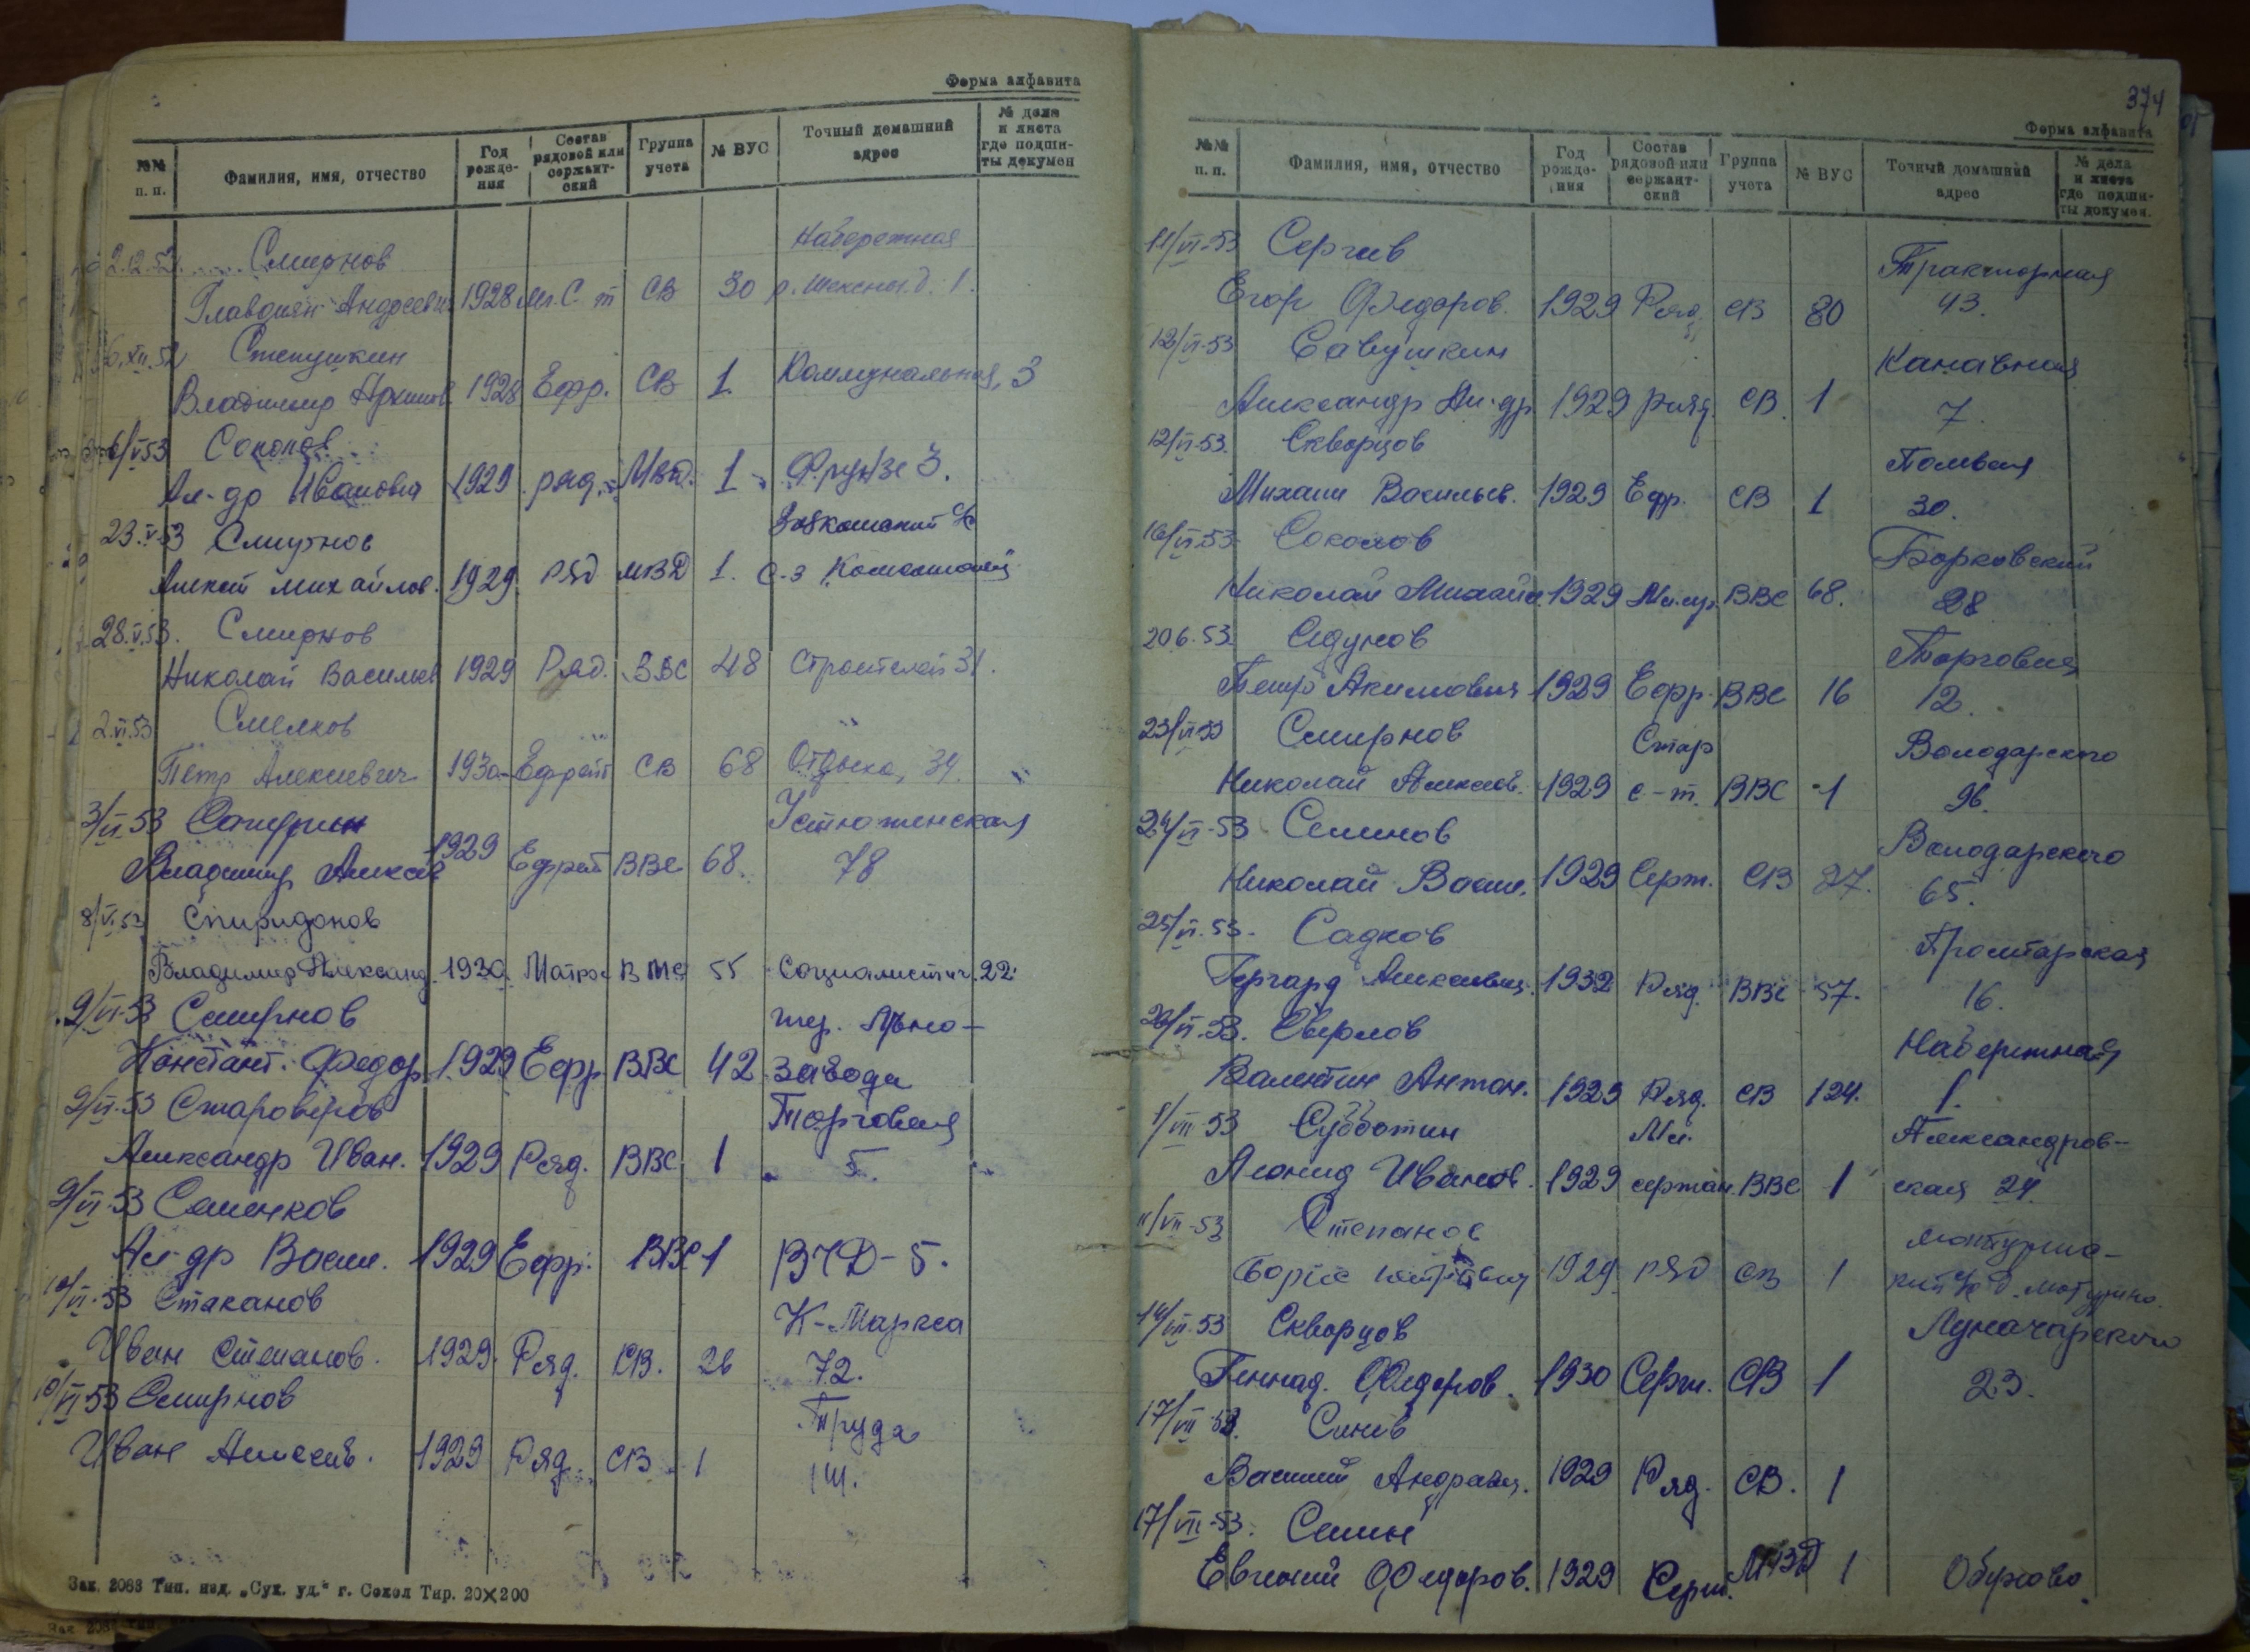 Форма алфавита
№№ п. п. Фамилия, имя, отчество Год рожде- ния Состав рядовой или сержант- ский Группа учета № ВУС Точный домашний адрес № дела и листа где подши- ты докумен
2.12.52. Смирнов Набережная
Андреевич 1928 Мл. С-т СВ 30 р. Шексны д. 1.
6.XII.52 Степушкин
Владимир 1928 Ефр. СВ 1 Коммунальная, 3
6/V 53 Соколов
Ал-др Иванович 1929 ряд. МВД. 1 Фрунзе 3.
23.V 53 Смирнов с/с
Алексей Михайлов. 1929 ряд МВД 1. с-з
28.V.53. Смирнов
Николай Васильев 1929 Ряд. ВВС 48 Строителей 31.
2.VI.53 Смелков
Петр Алексеевич 1930 Ефрейт СВ 68 Отдыха, 34.
3/VI 53 Устюженская
Владимир Алексе 1929 Ефрейт ВВС 68. 78
8/VI.53 Спиридонов
Владимир Александ. 1930. Матрос ВМС 55 Социалистич. 22.
9/VI-53 Смирнов тер. Льно-
Констант. Федор. 1929 Ефр ВВС 42 завода
9/VI-53 Староверов Торговая
Александр Иван. 1929 Ряд. ВВС 1 5.
9/VI-53 Семенков
Ал-др Васил. 1929 Ефр. ВВС 1 ВЧД-5.
10/VI-53 Стаканов К-Маркса
Иван Степанов. 1929. Ряд. СВ. 26 72.
10/VI 53 Смирнов Труда
Иван Алексеев. 1929 Ряд. СВ 1
Зак. 2063 Тип. изд. „Сух. уд." г. Сокол Тир. 20×200
374
Форма алфавита
№№ п. п. Фамилия, имя, отчество Год рожде- ния Состав рядовой или сержант- ский Группа учета № ВУС Точный домашний адрес № дела и листа где подши- ты докумен.
11/VI-53 Сергеев Тракторная
Егор Федоров. 1929 Ряд. СВ 80 43.
12/VI-53 Савушкин Канавная
Александр Ал-др. 1929 ряд. СВ. 1 7.
12/VI-53. Скворцов Полевая
Михаил Васильев. 1929 Ефр. СВ 1 30.
16/VI-53 Соколов Борковский
Николай Михайл. 1929 ВВС 68. 28
20.6.53. Седунов Торговая
Петр Акимович 1929 Ефр. ВВС 16 12.
23/VI-53 Смирнов Стар Володарского
Николай Алексеев. 1929 с-т. ВВС 1 96.
24/VI-53 Семенов Володарского
Николай Васил. 1929 Серж. СВ 27. 65.
25/VI.53. Садков Пролетарская
Гергард Алексеевич. 1932 Ряд. ВВС 57. 16.
26/VI.53. Сверлов Набережная
Валентин Антон. 1929 Ряд. СВ 124. 1.
1/VII 53 Субботин Мл. Александров-
Леонид Иванов. 1929 сержан. ВВС 1 ская 24.
11/VII-53 Степанов Мотурин-
Борис 1929 ряд СВ 1 с/с д. Мотурино.
14/VII-53 Скворцов Луначарского
Геннад. Федоров. 1930 Серж. СВ 1 23.
17/VII-53. Синев
Василий Андреевич. 1929 Ряд. СВ. 1
17/VII-53. Семин
Евгений Федоров. 1929 Серж. МВД 1 Обухово.